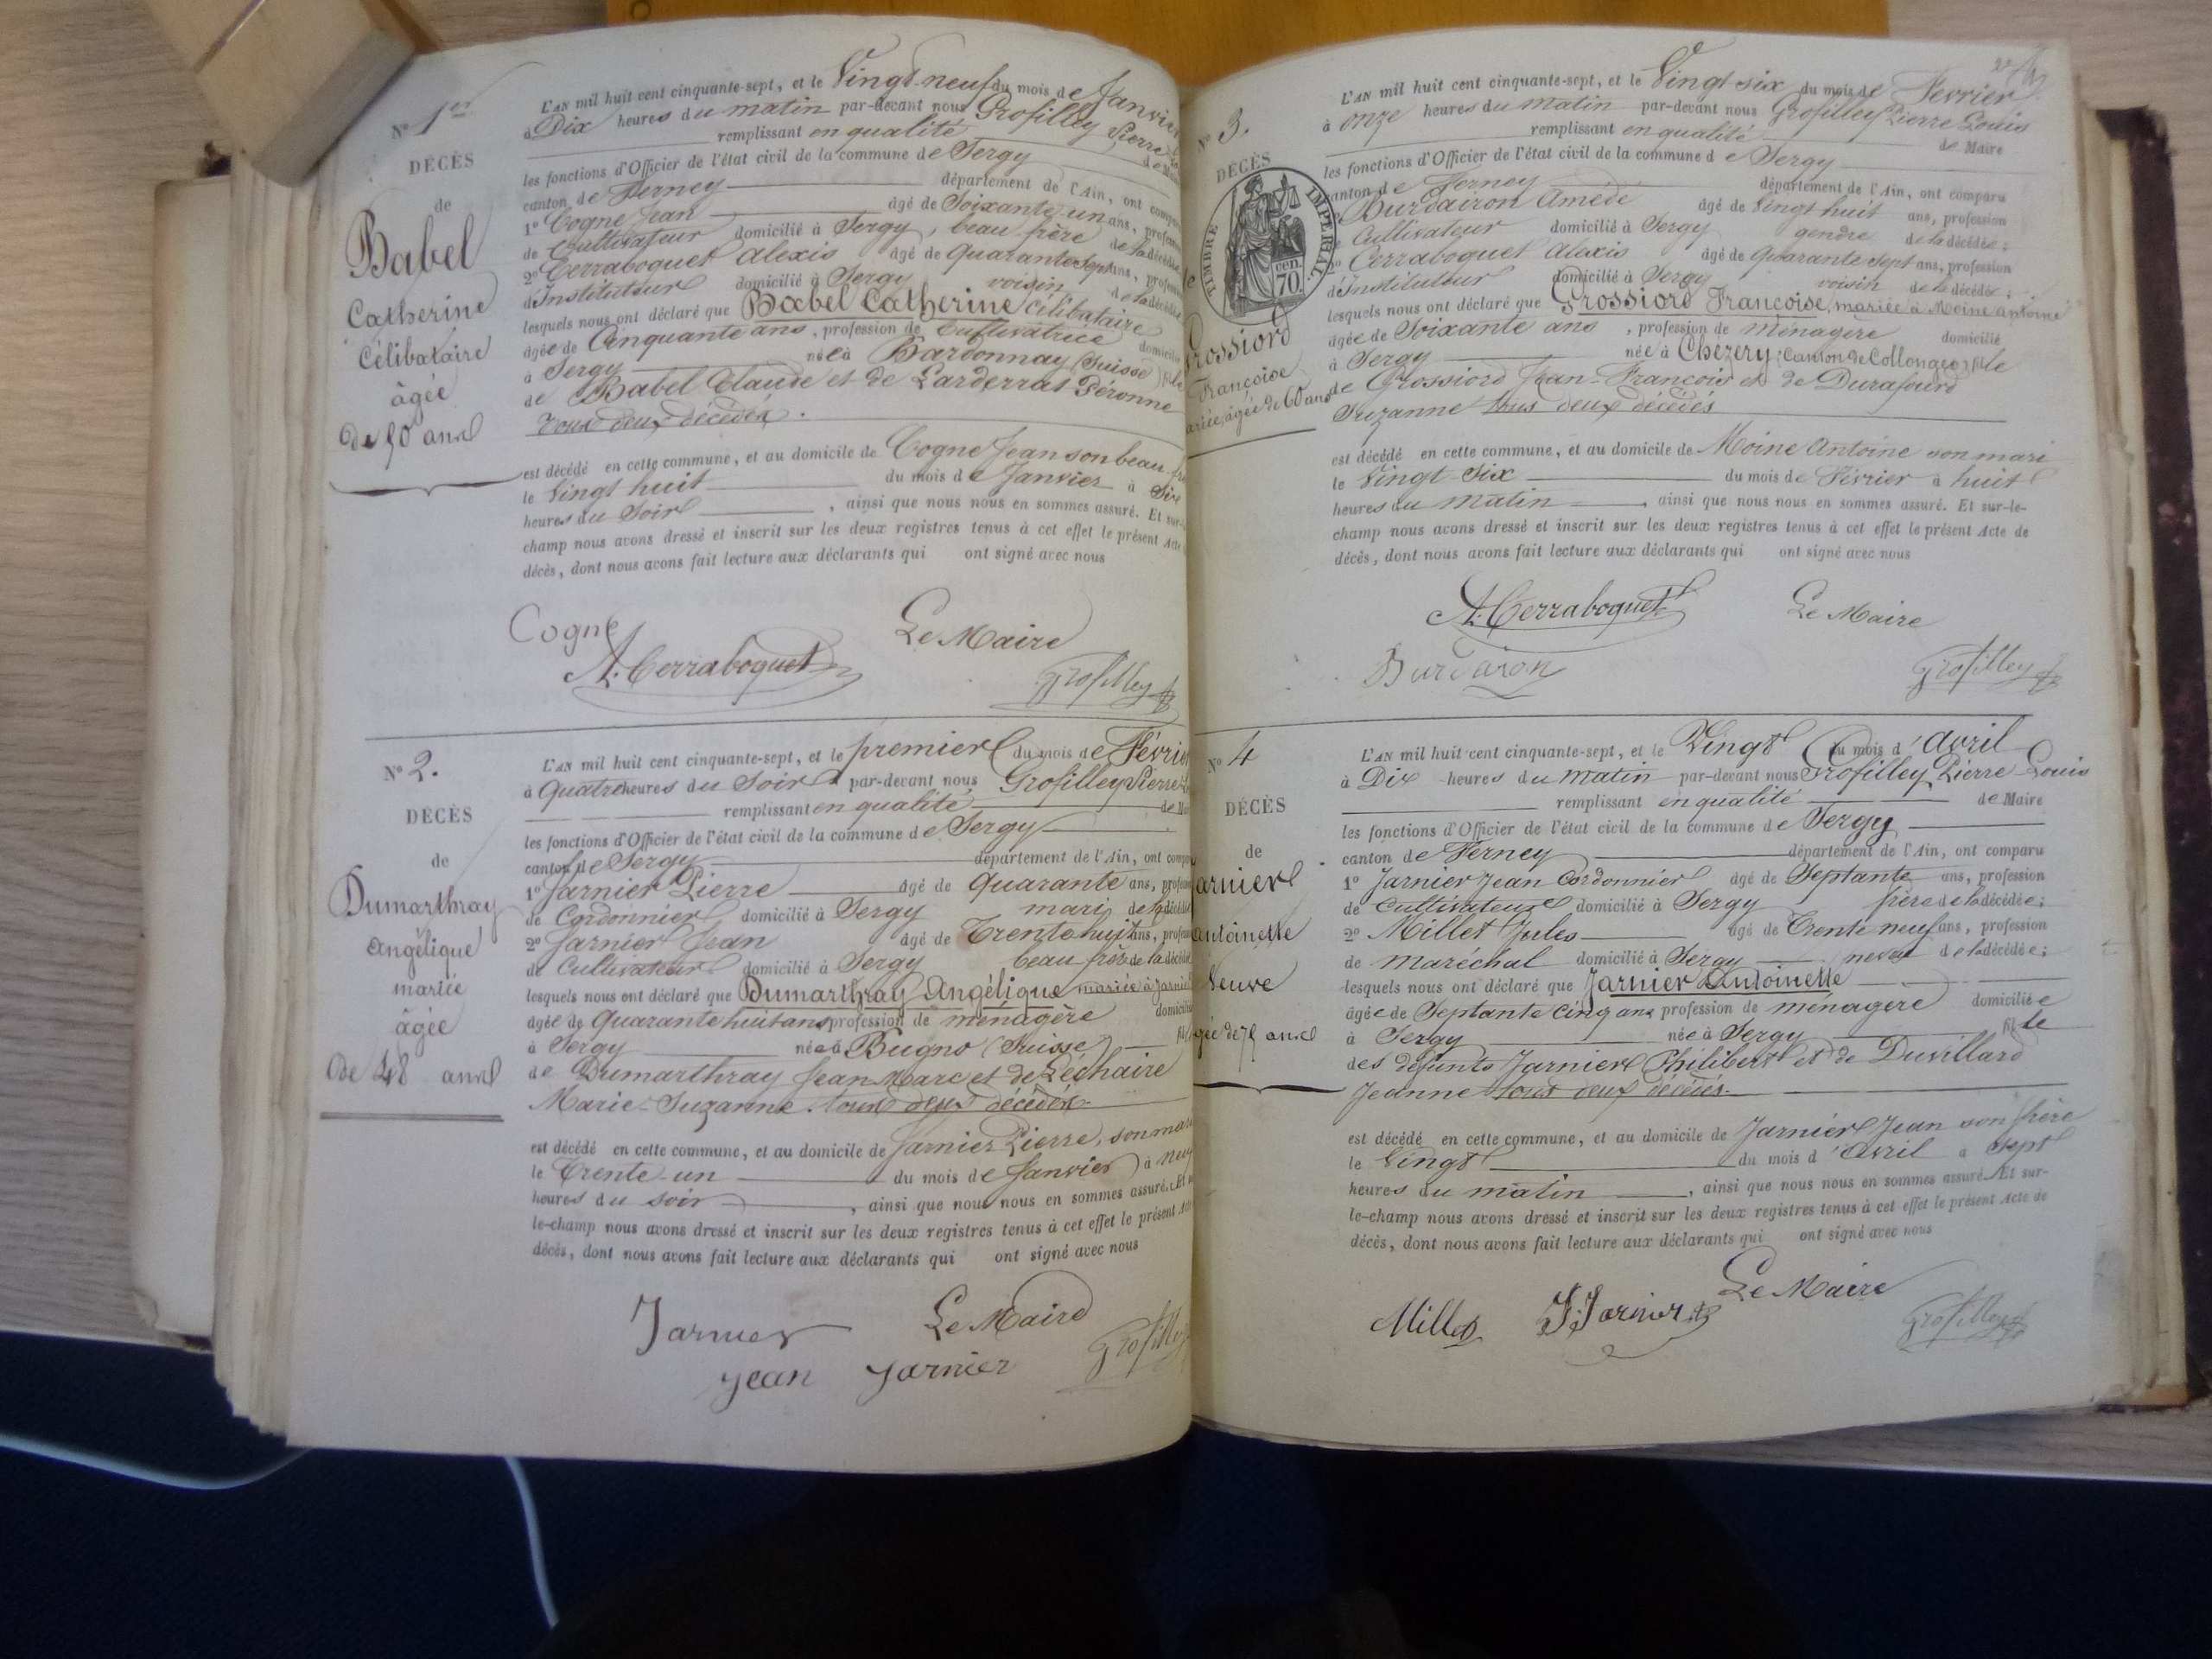 N° 1er
DÉCÈS
de
Babel
Catherine
Célibataire
âgée
de 50 ans
L'AN mil huit cent cinquante-sept, et le Vingt-neuf du mois de Janvier
à Dix heures du matin par-devant nous Grofilley Pierre
remplissant en qualité de Maire
les fonctions d'Officier de l'état civil de la commune de Sergy
canton de Ferney département de l'Ain, ont comparu
1° Cogne Jean âgé de Soixante un ans, profession
de Cultivateur domicilié à Sergy, beau frère de la décédée
2° Cerraboquet Alexis âgé de quarante sept ans, profession
d'Instituteur domicilié à Sergy voisin de la décédée
lesquels nous ont déclaré que Babel Catherine Célibataire
âgée de Cinquante ans, profession de Cultivatrice domicilié
à Sergy née à Bardonnay (Suisse) fille
de Babel Claude et de Larderrat Péronne
tous deux décédés.
est décédé en cette commune, et au domicile de Cogne Jean son beau frè
le Vingt huit du mois de Janvier à
heures du Soir, ainsi que nous nous en sommes assuré. Et sur-
champ nous avons dressé et inscrit sur les deux registres tenus à cet effet le présent Acte
décès, dont nous avons fait lecture aux déclarants qui ont signé avec nous
Cogne Le Maire
A. Cerraboquet Grofilley
N° 2.
DÉCÈS
de
Dumarthray
Angélique
mariée
âgée
de 48 ans
L'AN mil huit cent cinquante-sept, et le premier du mois de Février
à Quatre heures du Soir par-devant nous Grofilley Pierre
remplissant en qualité de Maire
les fonctions d'Officier de l'état civil de la commune de Sergy
canton de Sergy département de l'Ain, ont comparu
1° Jarnier Pierre âgé de Quarante ans, profession
de Cordonnier domicilié à Sergy mari de la décédée
2° Jarnier Jean âgé de Trente huit ans, profession
de Cultivateur domicilié à Sergy beau frère de la décédée
lesquels nous ont déclaré que Dumarthray Angélique mariée à Jarnier
âgée de Quarante huit ans profession de ménagère domicilié
à Sergy née à Bugno (Suisse) fil
de Dumarthray Jean Marc et de Léchaire
Marie-Suzanne tous deux décédés
est décédé en cette commune, et au domicile de Jarnier Pierre, son mari
le Trente-un du mois de Janvier à neuf
heures du soir, ainsi que nous nous en sommes assuré. Et
le-champ nous avons dressé et inscrit sur les deux registres tenus à cet effet le présent Acte
décès, dont nous avons fait lecture aux déclarants qui ont signé avec nous
Jarnier Le Maire
jean jarnier Grofilley
N° 3.
DÉCÈS
TIMBRE IMPERIAL
cen. 70.
de
Grossiord
Françoise
mariée, âgée de 60 ans
L'AN mil huit cent cinquante-sept, et le Vingt six du mois de Fevrier
à onze heures du matin par-devant nous Grofilley Pierre Louis
remplissant en qualité de Maire
les fonctions d'Officier de l'état civil de la commune de Sergy
canton de Ferney département de l'Ain, ont comparu
Burdairon Amédé âgé de vingt huit ans, profession
de Cultivateur domicilié à Sergy gendre de la décédée;
2° Cerraboquet Alexis âgé de quarante sept ans, profession
d'Instituteur domicilié à Sergy voisin de la décédée;
lesquels nous ont déclaré que Grossiord Françoise, mariée à Moine Antoine
âgée de Soixante ans, profession de Ménagère domicilié
à Sergy née à Chézery, Canton de Collonges fille
de Grossiord Jean-François et de Durafourd
Suzanne tous deux décédés
est décédé en cette commune, et au domicile de Moine Antoine son mari
le Vingt Six du mois de Février à huit
heures du matin, ainsi que nous nous en sommes assuré. Et sur-le-
champ nous avons dressé et inscrit sur les deux registres tenus à cet effet le présent Acte de
décès, dont nous avons fait lecture aux déclarants qui ont signé avec nous
A. Cerraboquet Le Maire
Burdairon Grofilley
N° 4
DÉCÈS
de
arnier
Antoinette
Veuve
gée de 75 ans
L'AN mil huit cent cinquante-sept, et le Vingt du mois d'Avril
à Dix heures du matin par-devant nous Grofilley Pierre Louis
remplissant en qualité de Maire
les fonctions d'Officier de l'état civil de la commune de Sergy
canton de Ferney département de l'Ain, ont comparu
1° Jarnier Jean Cordonnier âgé de Septante ans, profession
de Cultivateur domicilié à Sergy frère de la décédée;
2° Millet Jules âgé de Trente neuf ans, profession
de Maréchal domicilié à Sergy neveu de la décédée;
lesquels nous ont déclaré que Jarnier Antoinette
âgée de Septante Cinq ans profession de ménagère domiciliée
à Sergy née à Sergy fille
des défunts Jarnier Philibert et de Duvillard
Jeanne tous deux décédés.
est décédé en cette commune, et au domicile de Jarnier Jean son frère
le Vingt du mois d'Avril à Sept
heures du matin, ainsi que nous nous en sommes assuré. Et sur-
le-champ nous avons dressé et inscrit sur les deux registres tenus à cet effet le présent Acte de
décès, dont nous avons fait lecture aux déclarants qui ont signé avec nous
Le Maire
Millet J. Jarnier Grofilley